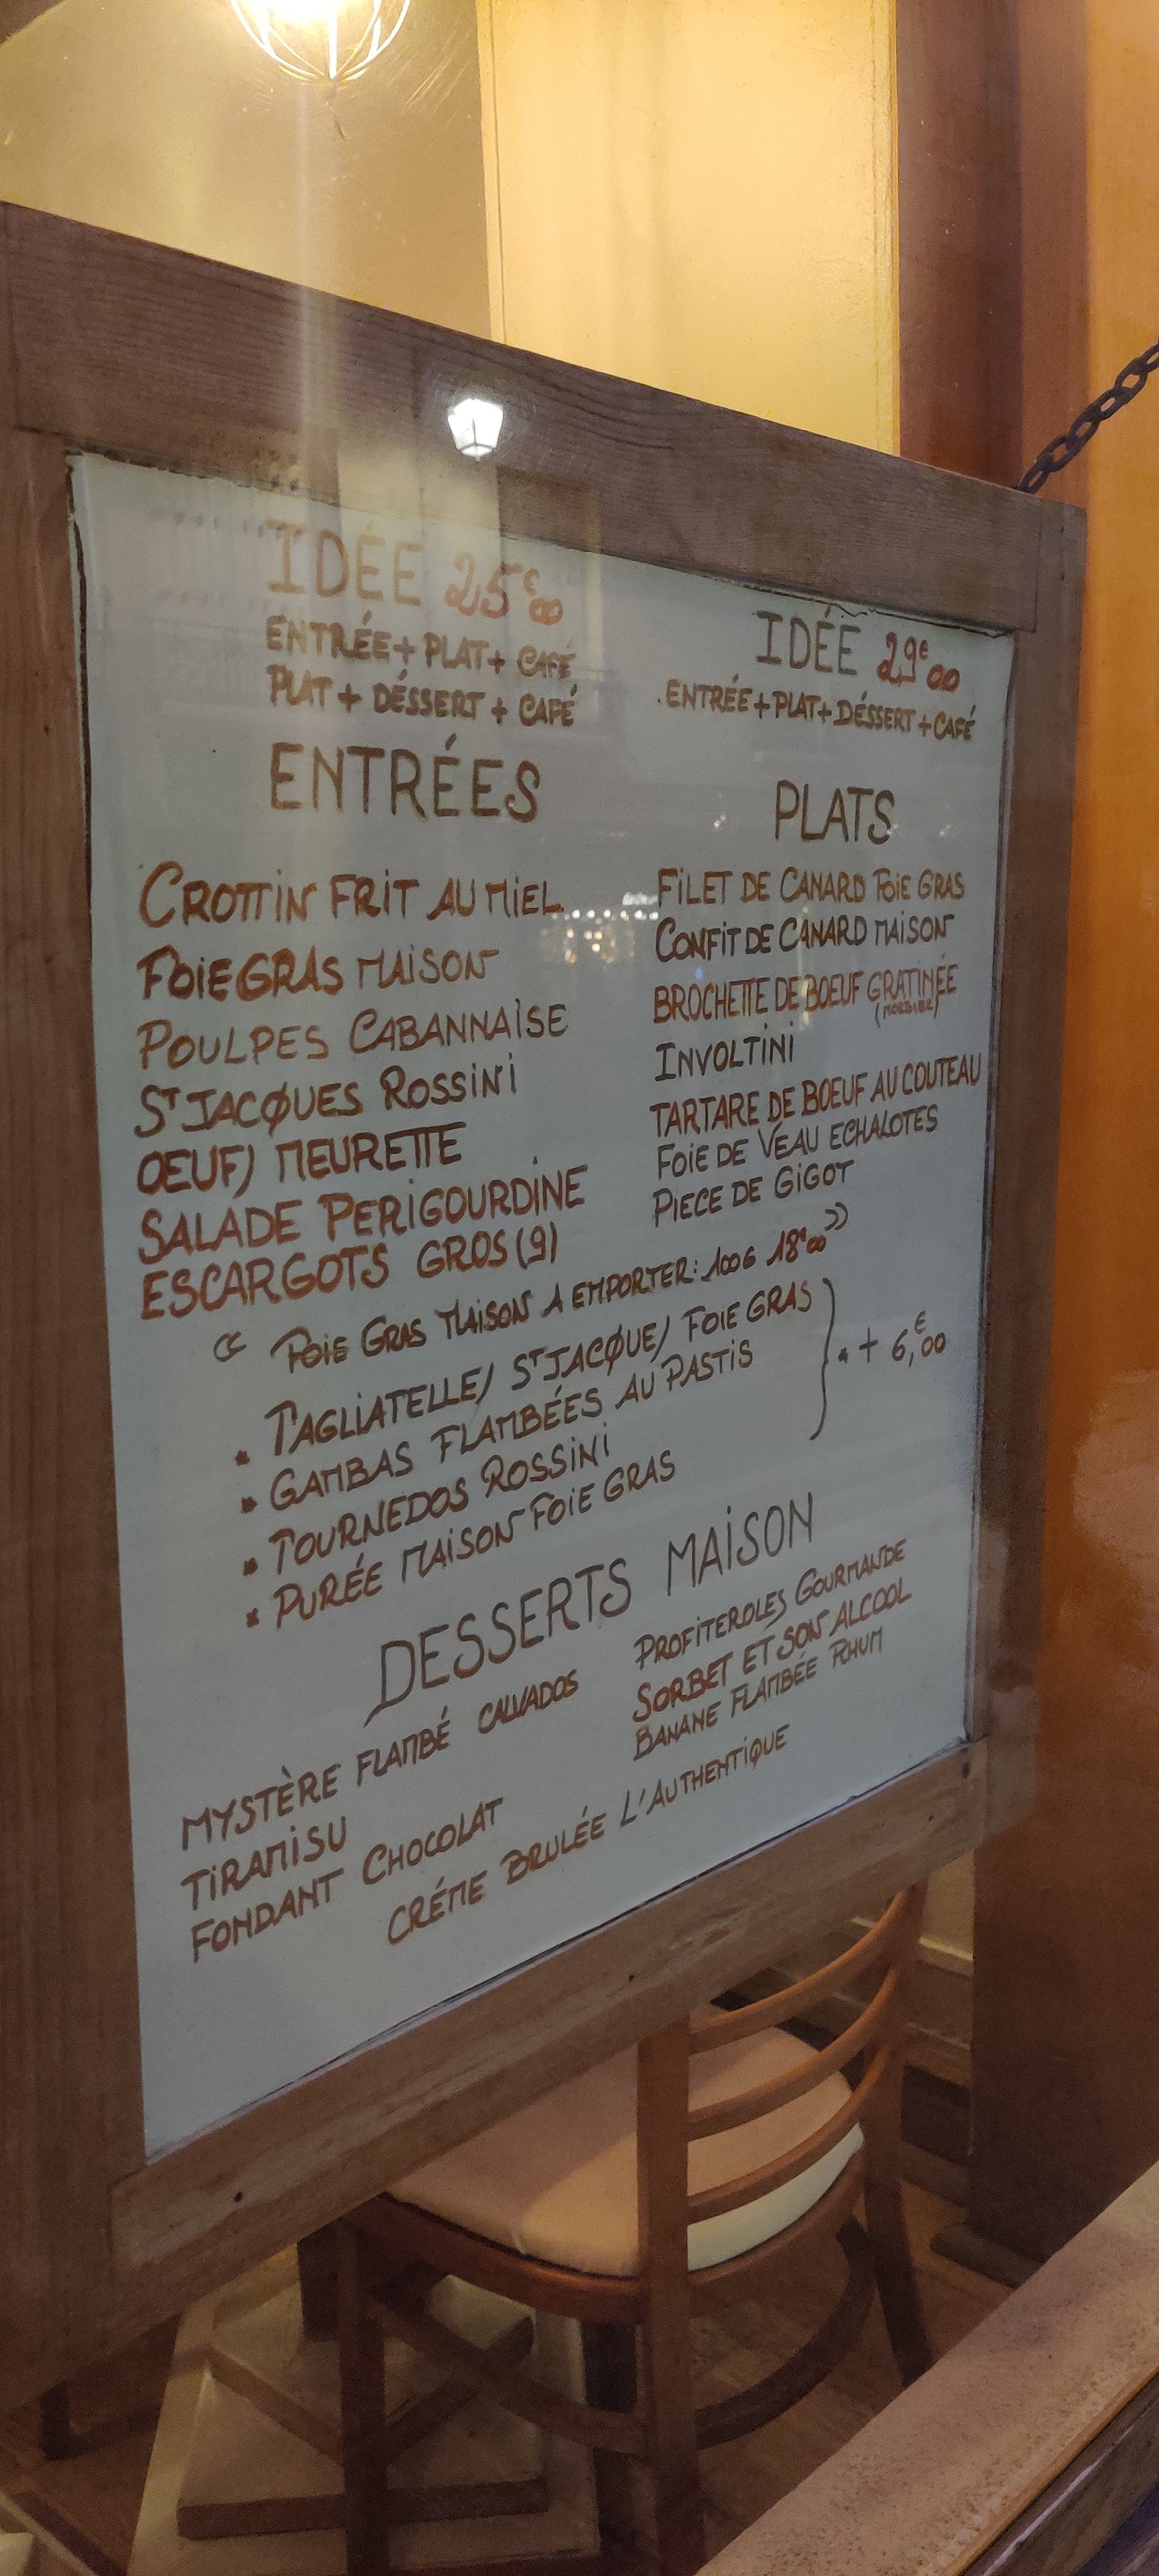 IDÉE 25€00
ENTRÉE + PLAT + CAFÉ
PLAT + DÉSSERT + CAFÉ
IDÉE 29€00
ENTRÉE + PLAT + DÉSSERT + CAFÉ
ENTRÉES
CROTTIN FRIT AU MIEL
FOIE GRAS MAISON
POULPES CABANNAISE
ST JACQUES ROSSINI
OEUF) MEURETTE
SALADE PERIGOURDINE
ESCARGOTS GROS (9)
PLATS
FILET DE CANARD FOIE GRAS
CONFIT DE CANARD MAISON
BROCHETTE DE BOEUF GRATINÉE
(MORBIER)
INVOLTINI
TARTARE DE BOEUF AU COUTEAU
FOIE DE VEAU ECHALOTES
PIECE DE GIGOT
" FOIE GRAS MAISON A EMPORTER: 100G 18€00 "
• TAGLIATELLE/ ST JACQUE/ FOIE GRAS
• GAMBAS FLAMBÉES AU PASTIS
• TOURNEDOS ROSSINI
• PURÉE MAISON FOIE GRAS
} • + 6,€00
DESSERTS MAISON
MYSTÈRE FLAMBÉ CALVADOS
TIRAMISU
FONDANT CHOCOLAT
PROFITEROLES GOURMANDE
SORBET ET SON ALCOOL
BANANE FLAMBÉE RHUM
CRÉME BRULÉE L'AUTHENTIQUE